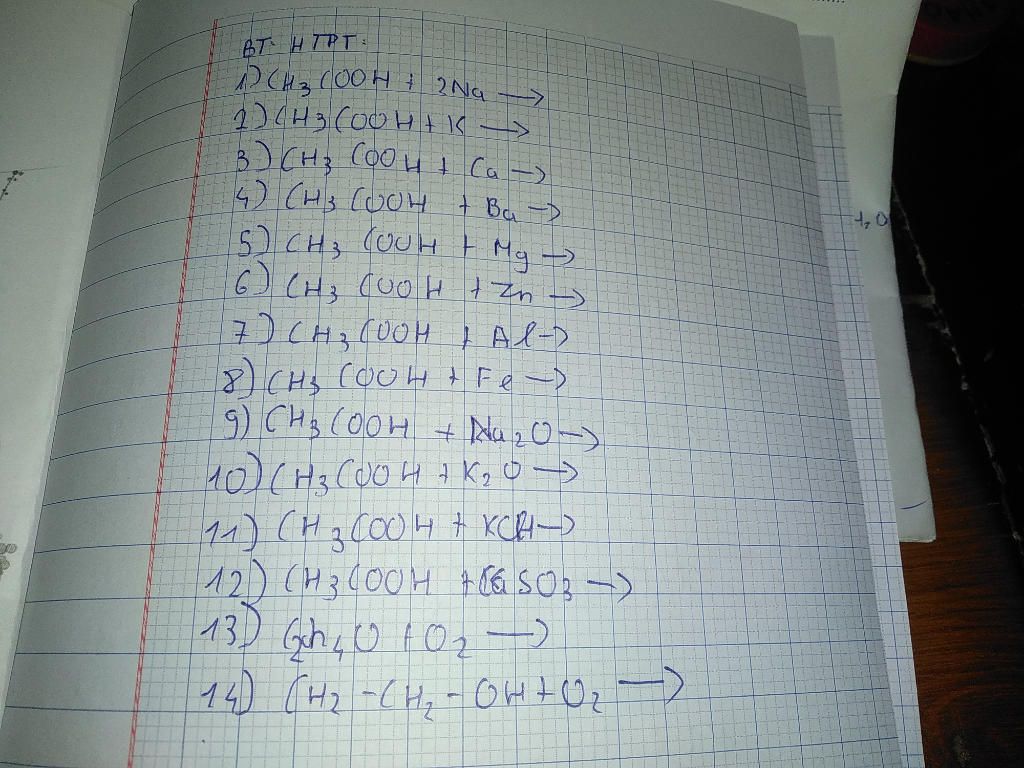 ВТ. НТРТ.
1) CH3COOH + 2Na →
2) CH3COOH + K →
3) CH3COOH + Ca →
4) CH3COOH + Ba →
5) CH3COOH + Mg →
6) CH3COOH + Zn →
7) CH3COOH + Al →
8) CH3COOH + Fe →
9) CH3COOH + Na2O →
10) CH3COOH + K2O →
11) CH3COOH + →
12) CH3COOH + SO3 →
13) C2h4O + O2 →
14) CH2 - CH2 - OH + O2 →